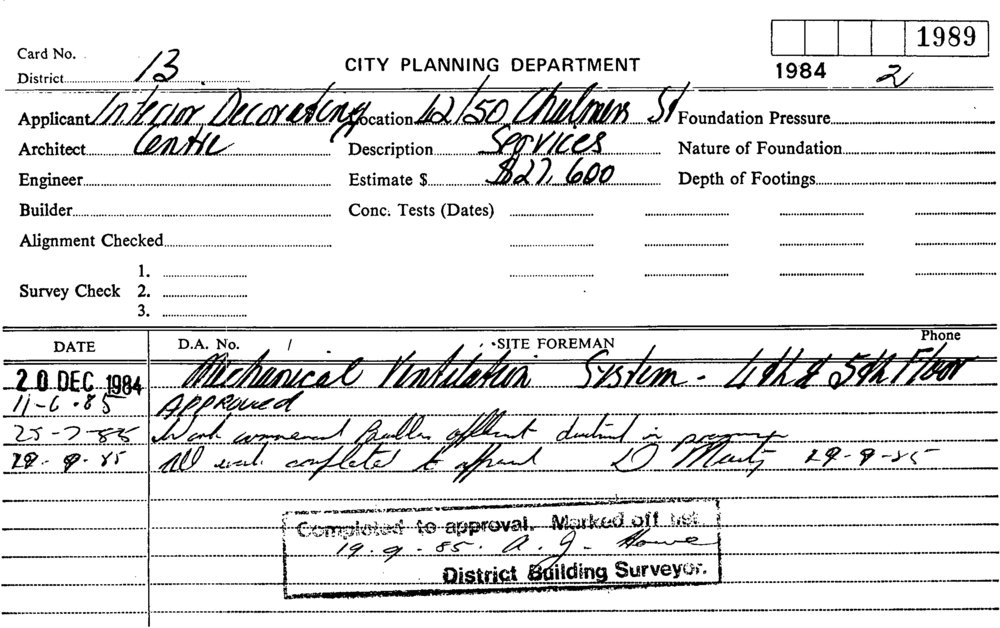 1989
Card No.
District 13
CITY PLANNING DEPARTMENT
1984 2
Applicant Interior Decorating Location 42/50 Chalmers St Foundation Pressure
Architect Centre Description Services Nature of Foundation
Engineer Estimate $ $27,600 Depth of Footings
Builder Conc. Tests (Dates)
Alignment Checked
1.
Survey Check 2.
3.
DATE D.A. No. / SITE FOREMAN Phone
20 DEC 1984 Mechanical Ventilation System - 4th & 5th Floor
11-6-85 APPROVED
25-7-85 Work commenced in progress
All work completed to approval
Completed to approval. Marked off list.
19.9.85. A. J. Howe
District Building Surveyor.